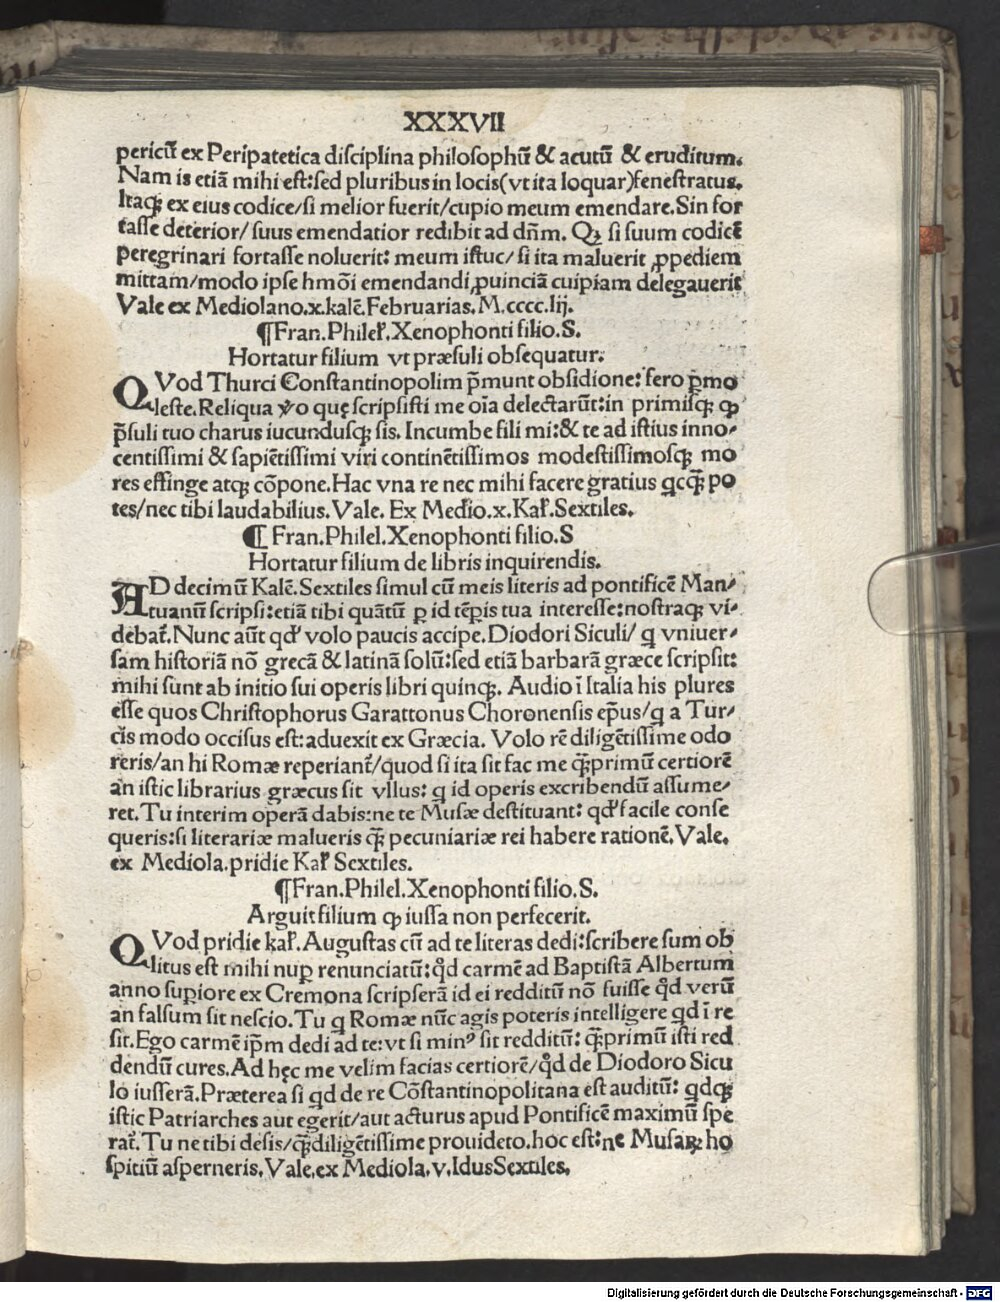 XXXVII
pericū ex Peripatetica disciplina philosophū & acutū & eruditum.
Nam is etiā mihi est:sed pluribus in locis(vt ita loquar)fenestratus.
Itaqꝫ ex eius codice/si melior fuerit/cupio meum emendare.Sin for
tasse deterior/suus emendatior redibit ad dn̄m. Qꝫ si suum codicē
peregrinari fortasse noluerit: meum istuc/si ita maluerit ꝓpediem
mittam/modo ipse hmōi emendandi ꝓuinciā cuipiam delegauerit
Vale ex Mediolano.x.kalē.Februarias.M.cccc.lij.
¶Fran.Philel̄.Xenophonti filio.S.
Hortatur filium vt præsuli obsequatur.
QVod Thurci Constantinopolim p̄munt obsidione: fero ꝑmo
leste.Reliqua ꝟo quę scripsisti me oīa delectarūt:in primisqꝫ ꝙ
p̄suli tuo charus iucundusqꝫ sis. Incumbe fili mi:& te ad istius inno⸗
centissimi & sapiētissimi viri continētissimos modestissimosqꝫ mo
res effinge atqꝫ cōpone.Hac vna re nec mihi facere gratius qcqꝫ̄ po
tes/nec tibi laudabilius. Vale. Ex Medio.x.Kal̄.Sextiles.
¶ Fran.Philel.Xenophonti filio.S
Hortatur filium de libris inquirendis.
AD decimū Kalē.Sextiles simul cū meis literis ad pontificē Man⸗
tuanū scripsi:etiā tibi quātū ꝑ id tēꝑis tua interesse:nostraqꝫ vi⸗
debat̄.Nunc aūt qd' volo paucis accipe.Diodori Siculi/ q vniuer⸗
sam historiā nō grecā & latinā solū:sed etiā barbarā græce scripsit:
mihi sunt ab initio sui operis libri quinqꝫ. Audio ī Italia his plures
esse quos Christophorus Garattonus Choronensis ep̄us/q a Tur⸗
cis modo occisus est:aduexit ex Græcia. Volo rē diligētissime odo
reris/an hi Romæ reperiant̄/quod si ita sit fac me qꝫ̄primū certiorē
an istic librarius græcus sit vllus: q id operis excribendū assume⸗
ret.Tu interim operā dabis:ne te Musæ destituant: qd' facile conse
queris:si literariæ malueris qꝫ̄ pecuniariæ rei habere rationē.Vale.
ex Mediola.pridie Kal̄ Sextiles.
¶Fran.Philel.Xenophonti filio.S.
Arguit filium ꝙ iussa non perfecerit.
QVod pridie kal̄.Augustas cū ad te literas dedi:scribere sum ob
litus est mihi nuꝑ renunciatū:qd carmē ad Baptistā Albertum
anno suꝑiore ex Cremona scripserā id ei redditū nō fuisse qd verū
an falsum sit nescio.Tu q Romæ nūc agis poteris intelligere qd ī re
sit.Ego carmē ip̄m dedi ad te:vt si minꝰ sit redditū: qꝫ̄primū isti red
dendū cures.Ad hęc me velim facias certiorē/qd de Diodoro Sicu
lo iusserā.Præterea si qd de re Cōstantinopolitana est auditū: qdqꝫ
istic Patriarches aut egerit/aut acturus apud Pontificē maximū spe
rat̄.Tu ne tibi desis/qꝫ̄diligētissime prouideto.hoc est:ne Musaꝝ ho
spitiū asperneris.Vale.ex Mediola.v.Idus Sextiles.
Digitalisierung gefördert durch die Deutsche Forschungsgemeinschaft - DFG